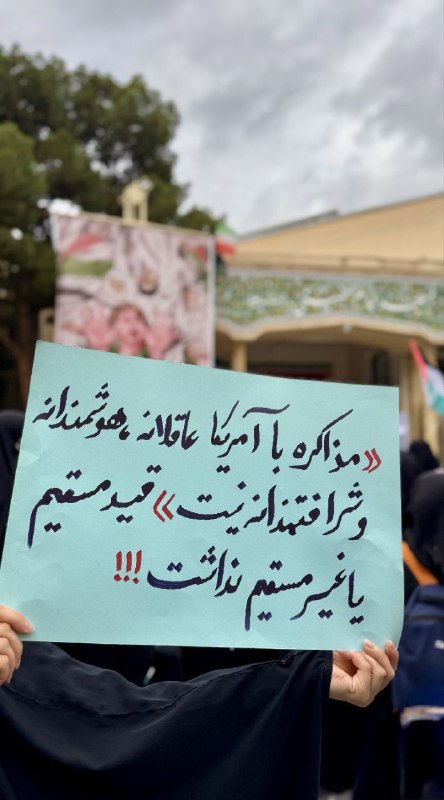 «مذاکره با آمریکا عاقلانه، هوشمندانه
و شرافتمندانه نیست» قید مستقیم
یا غیر مستقیم نداشت!!!